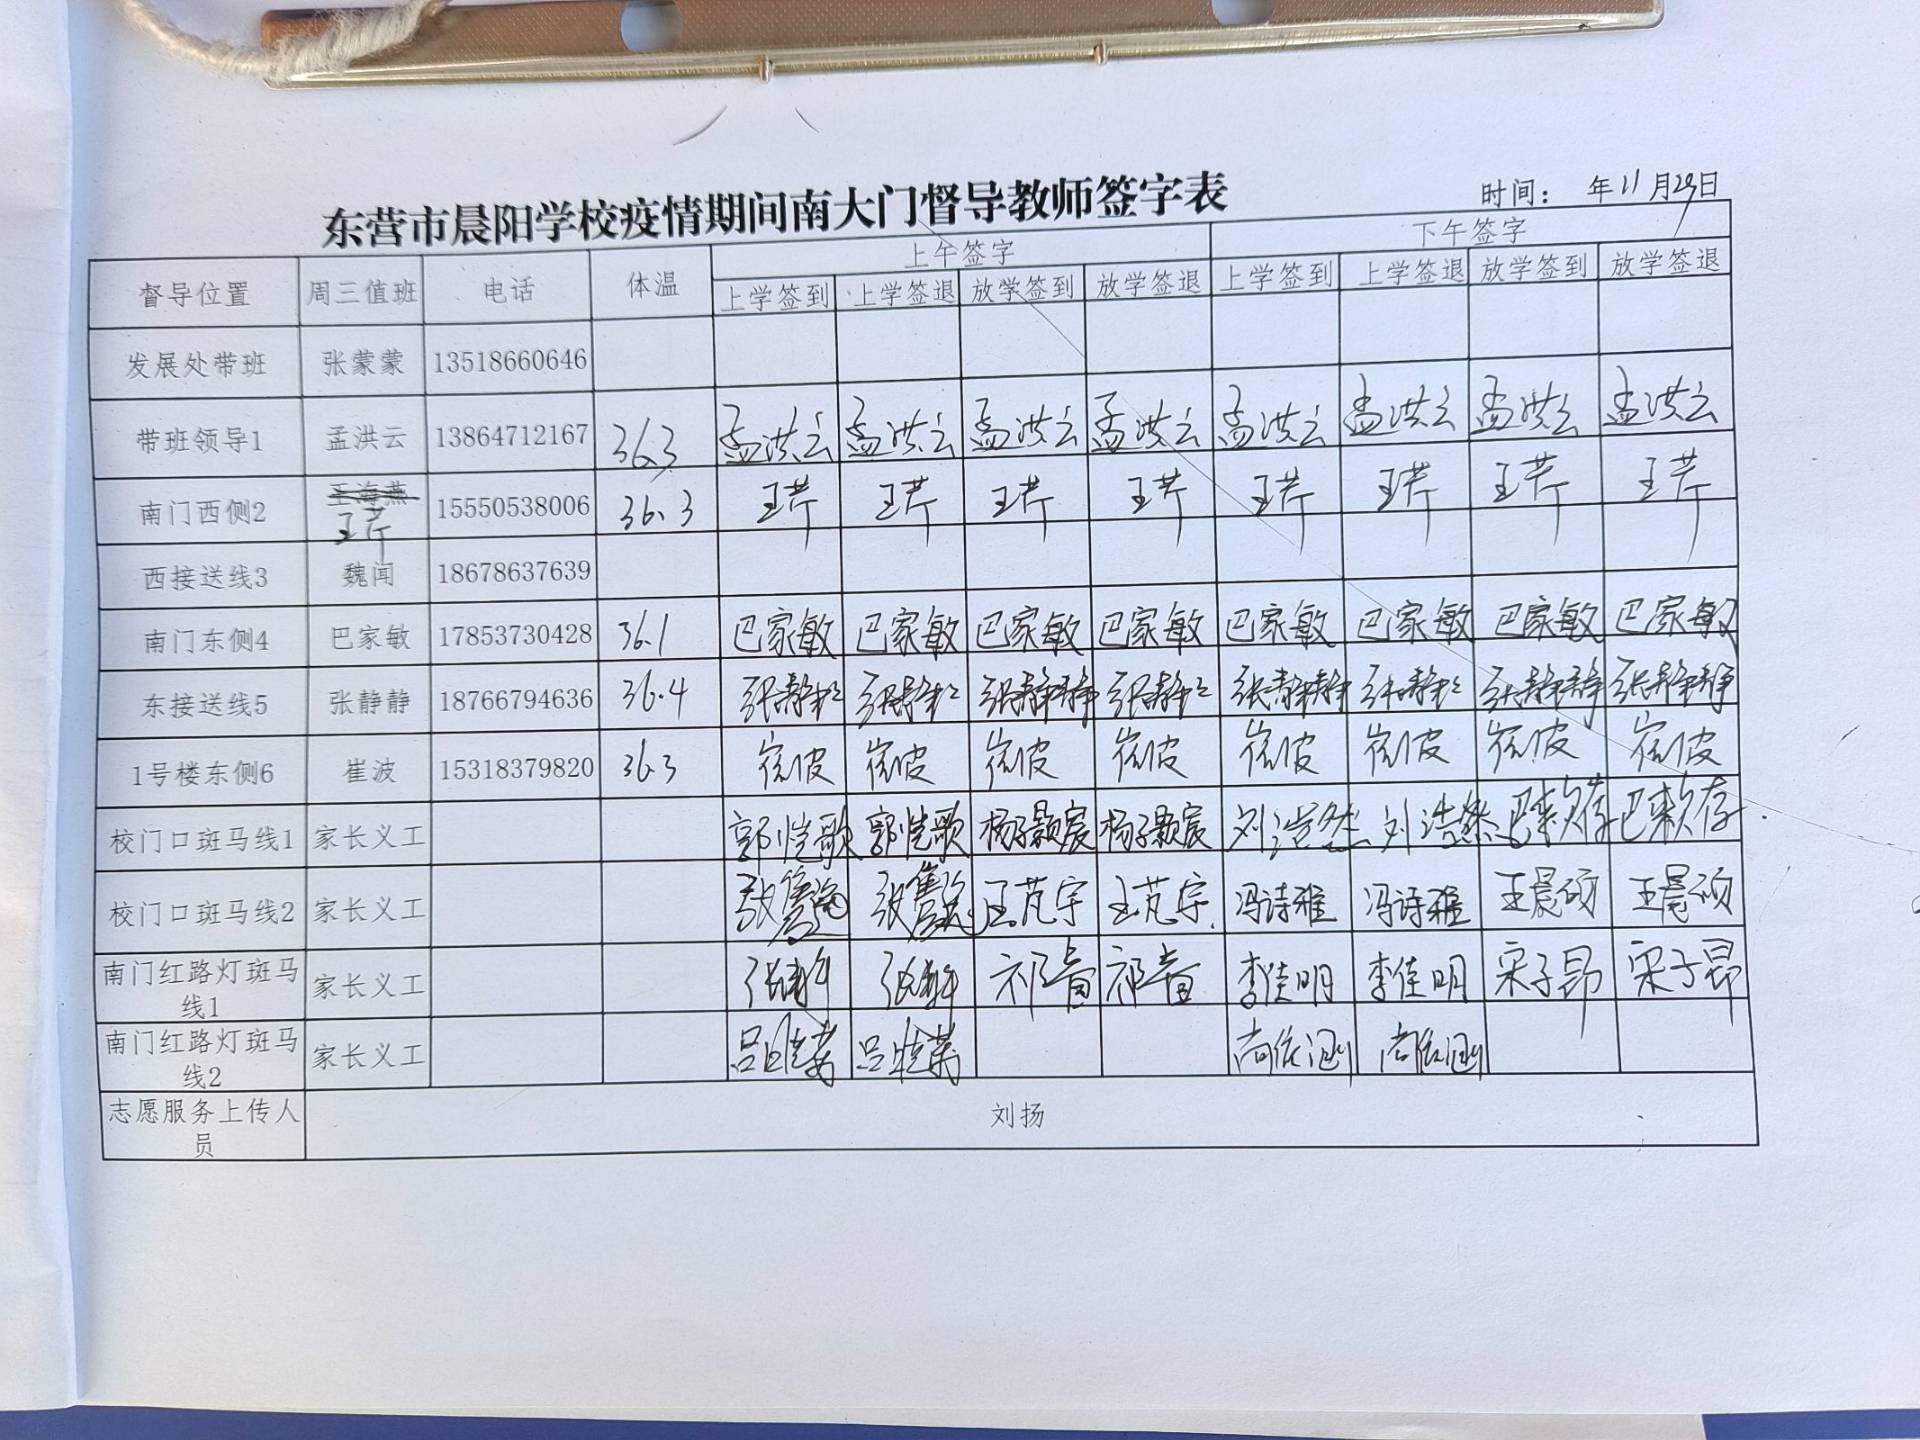 东营市晨阳学校疫情期间南大门督导教师签字表
时间： 年11月29日
督导位置 周三值班 电话 体温 上午签字 下午签字
上学签到 上学签退 放学签到 放学签退 上学签到 上学签退 放学签到 放学签退
发展处带班 张蒙蒙 13518660646
带班领导1 孟洪云 13864712167 36.3 孟洪云 孟洪云 孟洪云 孟洪云 孟洪云 孟洪云 孟洪云 孟洪云
南门西侧2 王海燕 王芹 15550538006 36.3 王芹 王芹 王芹 王芹 王芹 王芹 王芹 王芹
西接送线3 魏闻 18678637639
南门东侧4 巴家敏 17853730428 36.1 巴家敏 巴家敏 巴家敏 巴家敏 巴家敏 巴家敏 巴家敏 巴家敏
东接送线5 张静静 18766794636 36.4 张静静 张静静 张静静 张静静 张静静 张静静 张静静 张静静
1号楼东侧6 崔波 15318379820 36.3 崔波 崔波 崔波 崔波 崔波 崔波 崔波 崔波
校门口斑马线1 家长义工 郭恺歌 郭恺歌 杨子颢宸 杨子颢宸 刘浩然 刘浩然
校门口斑马线2 家长义工 王范宇 王范宇 冯诗雅 冯诗雅 王晨硕 王晨硕
南门红路灯斑马
线1 家长义工 李佳明 李佳明 宋子昂 宋子昂
南门红路灯斑马
线2 家长义工
志愿服务上传人
员 刘扬